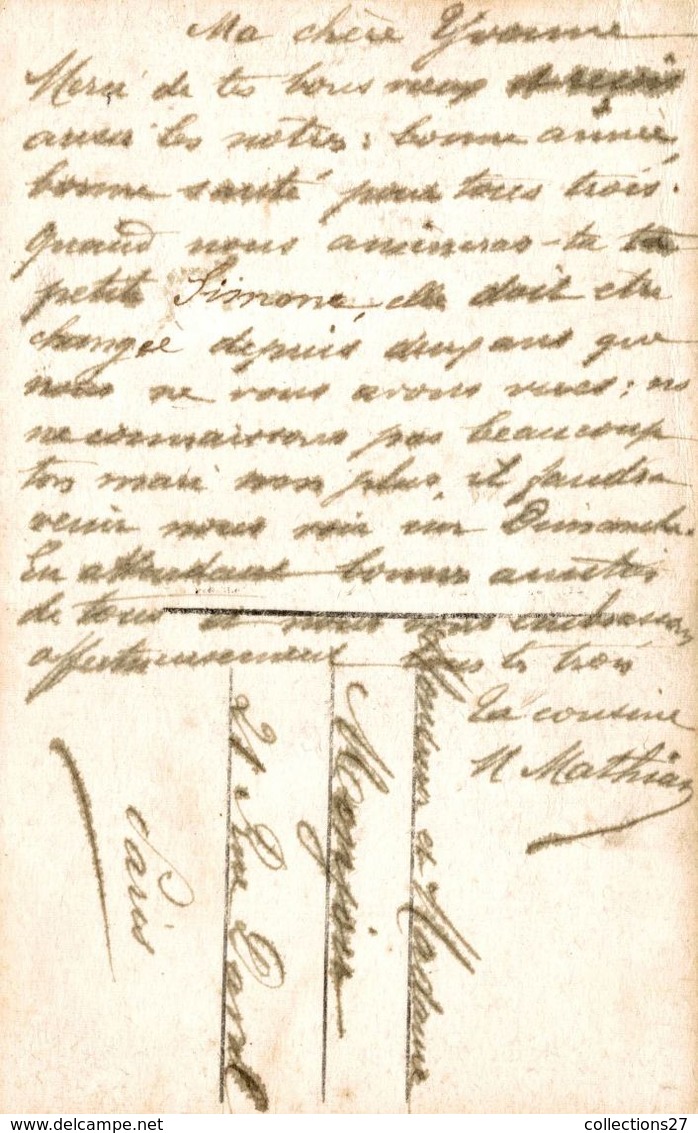 Ma chère Yvonne
Merci de tes bons vœux et reçois
aussi les nôtres : bonne année,
bonne santé pour tous trois.
Quand nous amèneras-tu ta
petite Simone, elle doit être
changée depuis deux ans que
nous ne vous avons vues ; ns
ne connaissons pas beaucoup
ton mari non plus, il faudra
venir nous voir un Dimanche.
En attendant bonnes amitiés
de tous et nous vous embrassons
affectueusement tous les trois
Ta cousine
M Mathia
Monsieur et Madame
21 Rue
Paris
collections27